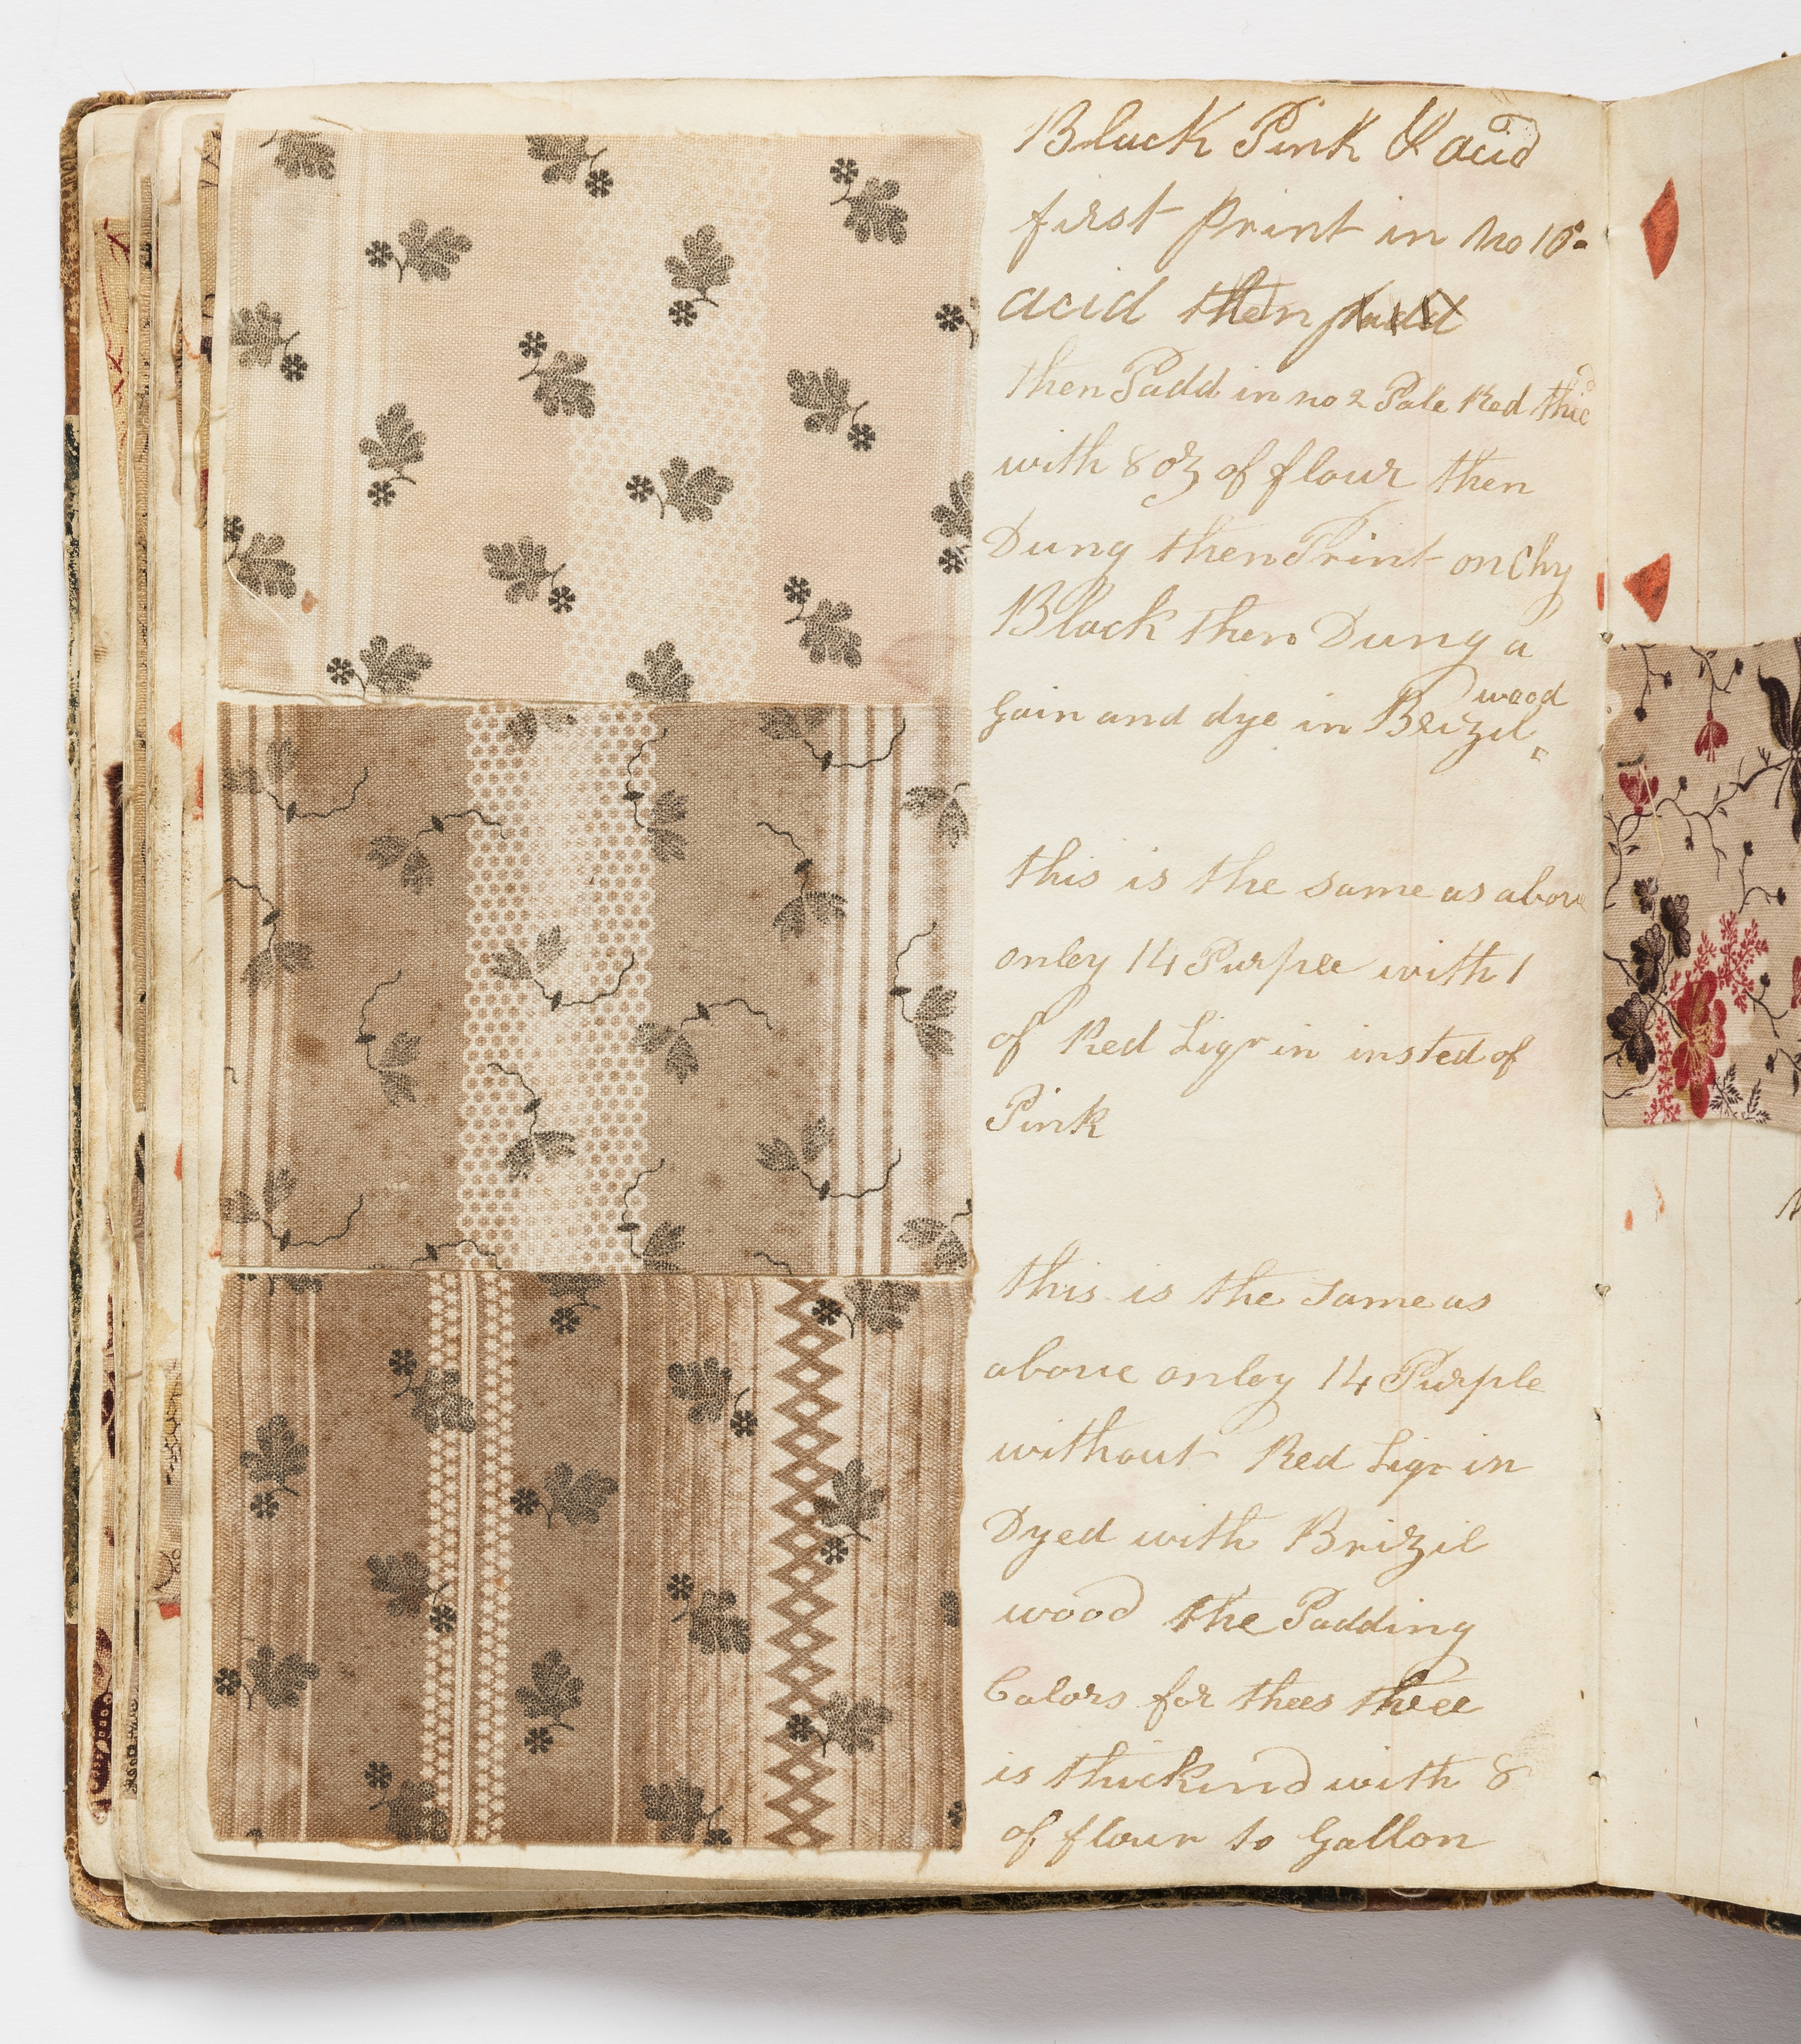 Black Pink & acid
first Print in no 10
acid then padd
then Padd in no 2 Pale Red thic
with 8 oz of flour then
Dung then Print on Chy
Black then Dung a
gain and dye in Brizil wood
this is the same as above
onley 14 Purple with 1
of Red Liqr in insted of
Pink
this is the same as
above onley 14 Purple
without Red Liqr in
Dyed with Brizil
wood the Padding
Colors for thees three
is thickind with 8
of flour to Gallon